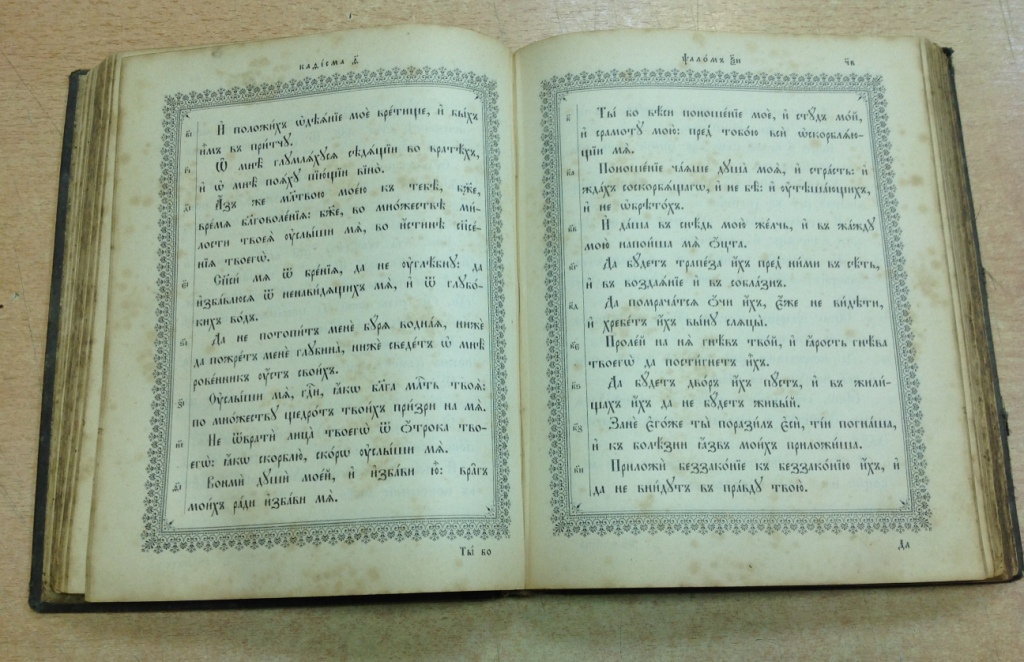 каѳі́сма
И҆ положи́хъ ѡ҆дѣѧ́нїе моѐ вре́тище, и҆ бы́хъ
и҆̀мъ въ при́тчꙋ.
Ѡ҆ мнѣ̀ глꙋмлѧ́хꙋсѧ сѣдѧ́щїи во вратѣ́хъ,
и҆ ѡ҆ мнѣ̀ поѧ́хꙋ пїю́щїи вїно̀.
А҆́зъ же мл҃твою мое́ю къ тебѣ̀, бж҃е,
вре́мѧ бл҃говоле́нїѧ: бж҃е, во мно́жествѣ ми́-
лости твоеѧ̀ ᲂу҆слы́ши мѧ̀, во и҆́стинѣ сп҃се́-
нїѧ твоегѡ̀.
Сп҃си́ мѧ ѿ бре́нїѧ, да не ᲂу҆глѣ́бнꙋ: да
и҆зба́влюсѧ ѿ ненави́дѧщихъ мѧ̀, и҆ ѿ глꙋбо́-
кихъ во́дъ.
Да не потопи́тъ менѐ бꙋ́рѧ воднаѧ, нижѐ
да пожре́тъ менѐ глꙋбина̀, нижѐ сведе́тъ ѡ҆ мнѣ̀
рове́нникъ ᲂу҆́стъ свои́хъ.
Оу҆слы́ши мѧ̀, гдⷭ҇и, ꙗ҆́кѡ бл҃га млⷭ҇ть твоѧ̀:
по мно́жествꙋ щедро́тъ твои́хъ при́зри на мѧ̀.
Не ѿвратѝ лица̀ твоегѡ̀ ѿ ѻ҆́трока тво-
егѡ̀: ꙗ҆́кѡ скорблю̀, ско́рѡ ᲂу҆слы́ши мѧ̀.
Вонмѝ дꙋшѝ мое́й, и҆ и҆зба́ви ю҆̀: вра̑гъ
мои́хъ ра́ди и҆зба́ви мѧ̀.
Ты́ бо
ѱало́мъ ѯ҃и
ч҃в
Ты́ бо вѣ́си поноше́нїе моѐ, и҆ стꙋ́дъ мо́й,
и҆ срамотꙋ̀ мою̀: пред̾ тобо́ю всѝ ѡ҆скорблѧ́ю-
щїи мѧ̀.
к҃а
Поноше́нїе ча́ѧше дꙋша̀ моѧ̀, и҆ стра́сть: и҆
жда́хъ соскорбѧ́щагѡ, и҆ не бѣ̀: и҆ ᲂу҆тѣша́ющихъ,
и҆ не ѡ҆брѣто́хъ.
к҃в
И҆ да́ша въ снѣ́дь мою̀ же́лчь, и҆ въ жа́ждꙋ
мою̀ напои́ша мѧ̀ ѻ҆́цта.
к҃г
Да бꙋ́детъ трапе́за и҆́хъ пред̾ ни́ми въ сѣ́ть,
и҆ въ воздаѧ́нїе и҆ въ собла́знъ.
к҃д
Да помрача́тсѧ ѻ҆́чи и҆́хъ, є҆́же не ви́дѣти,
и҆ хребе́тъ и҆́хъ вы́нꙋ слѧцы̀.
к҃є
Проле́й на нѧ̀ гнѣ́въ тво́й, и҆ ꙗ҆́рость гнѣ́ва
твоегѡ̀ да пости́гнетъ и҆̀хъ.
к҃ѕ
Да бꙋ́детъ дво́ръ и҆́хъ пꙋ́стъ, и҆ въ жили́-
щахъ и҆́хъ да не бꙋ́детъ живы́й.
к҃з
Занѐ є҆го́же ты̀ порази́лъ є҆сѝ, ті́и погна́ша,
и҆ къ болѣ́зни ꙗ҆́звъ мои́хъ приложи́ша.
к҃и
Приложѝ беззако́нїе къ беззако́нїю и҆́хъ, и҆
да не вни́дꙋтъ въ пра́вдꙋ твою̀.
Да